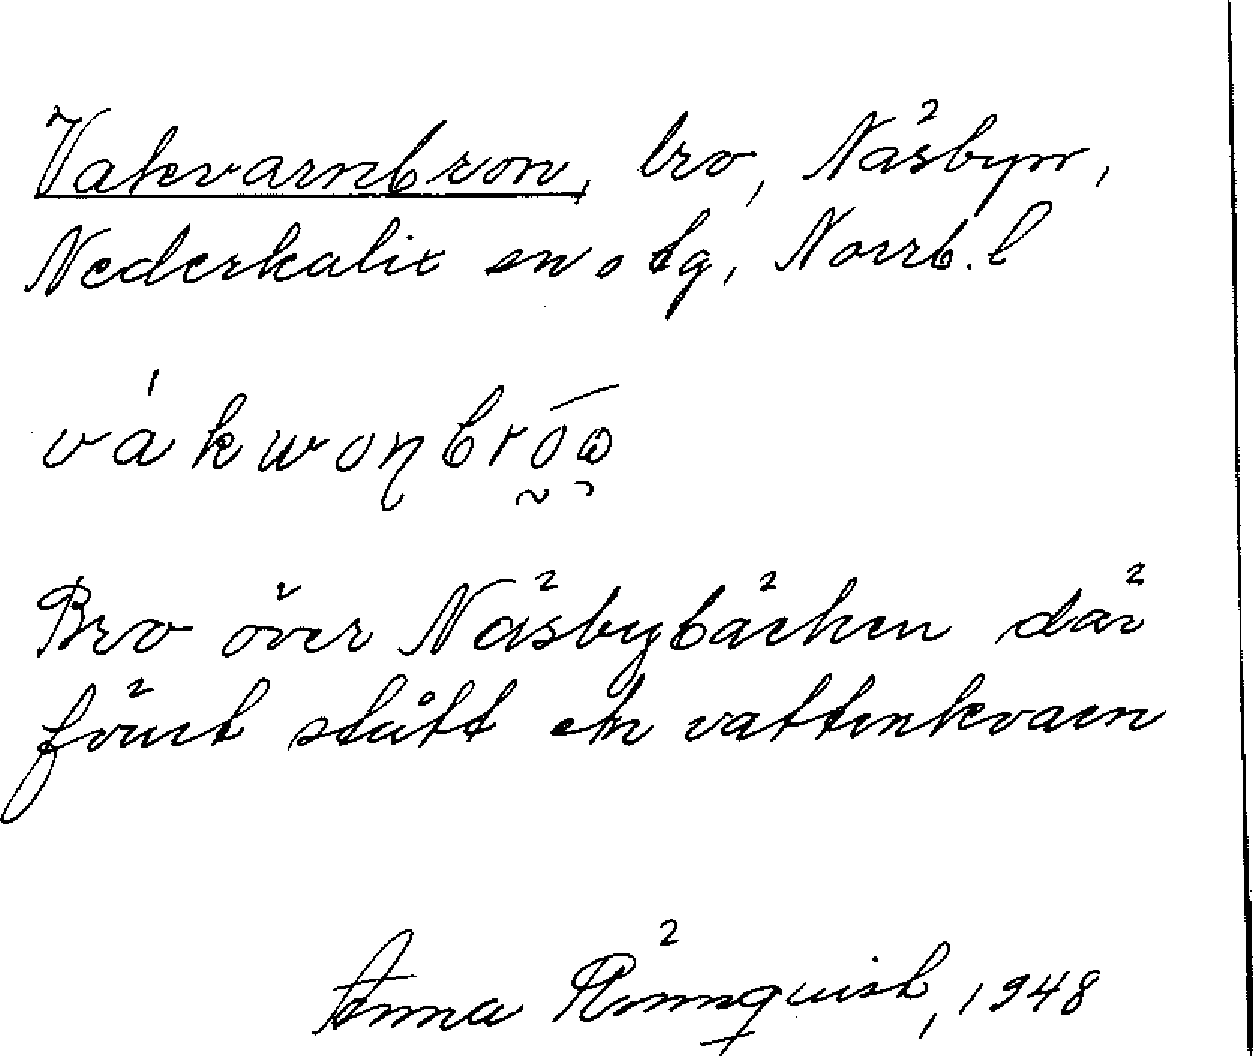 Vakvarnbron, bro, Näsbyn,
Nederkalix sn o tg, Norrb. l
vákwoṇbrōɷ
Bro över Näsbybäcken där
förut stått en vattenkvarn
Anna Rönnquist, 1948